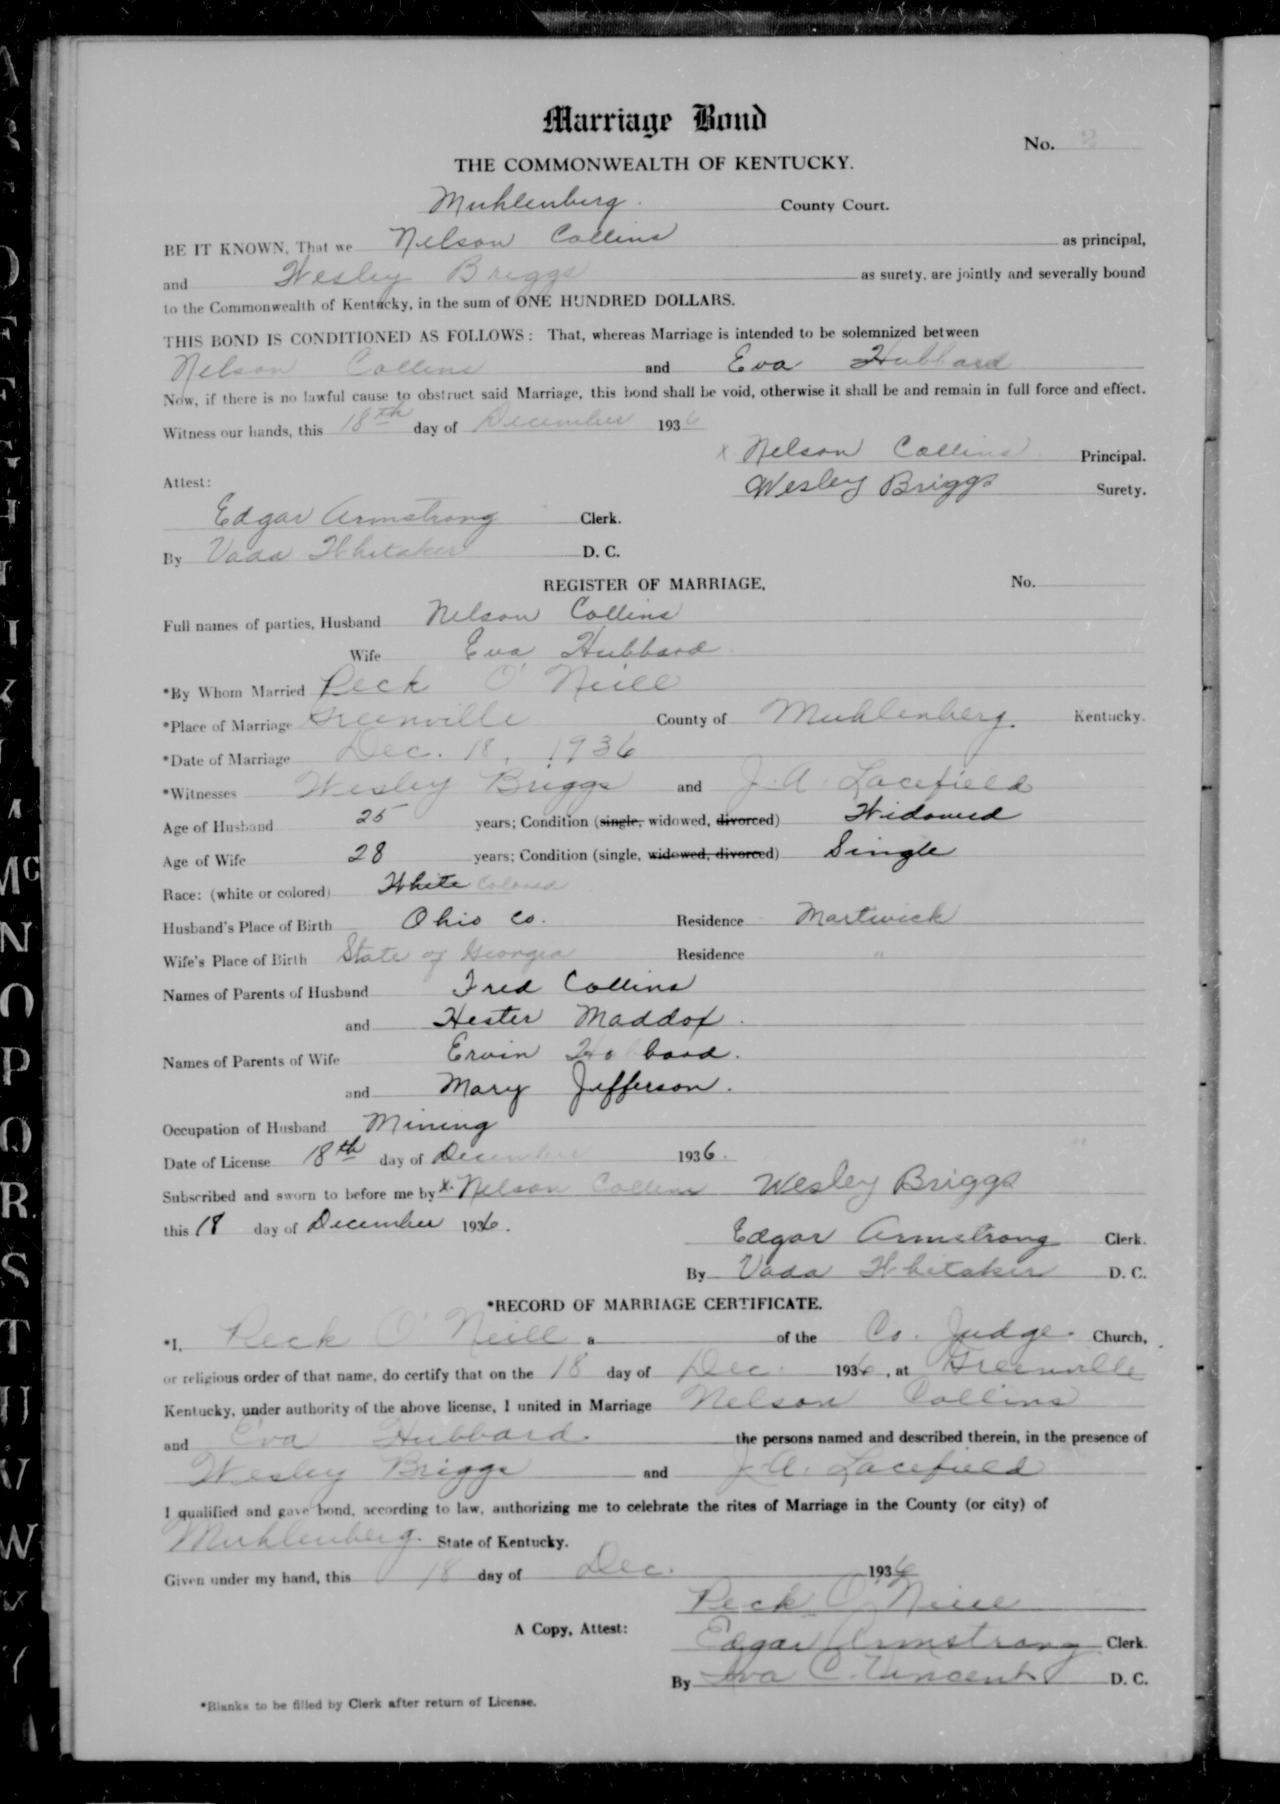 Marriage Bond
No. 2
THE COMMONWEALTH OF KENTUCKY.
Muhlenberg. County Court.
BE IT KNOWN, That we Nelson Collins as principal,
and Wesley Briggs as surety, are jointly and severally bound
to the Commonwealth of Kentucky, in the sum of ONE HUNDRED DOLLARS.
THIS BOND IS CONDITIONED AS FOLLOWS: That, whereas Marriage is intended to be solemnized between
Nelson Collins and Eva Hubbard
Now, if there is no lawful cause to obstruct said Marriage, this bond shall be void, otherwise it shall be and remain in full force and effect.
Witness our hands, this 18th day of December 1936
x Nelson Collins Principal.
Attest: Wesley Briggs Surety.
Edgar Armstrong Clerk.
By Vada Whitaker D. C.
REGISTER OF MARRIAGE, No.
Full names of parties, Husband Nelson Collins
Wife Eva Hubbard
*By Whom Married Peck O'Neill
*Place of Marriage Greenville County of Muhlenberg. Kentucky.
*Date of Marriage Dec. 18, 1936
*Witnesses Wesley Briggs and J. A. Lacefield
Age of Husband 25 years; Condition (single, widowed, divorced) Widowed
Age of Wife 28 years; Condition (single, widowed, divorced) Single
Race: (white or colored) White Colored
Husband's Place of Birth Ohio Co. Residence Martwick
Wife's Place of Birth State of Georgia Residence "
Names of Parents of Husband Fred Collins
and Hester Maddox.
Names of Parents of Wife Ervin Hubbard.
and Mary Jefferson.
Occupation of Husband Mining
Date of License 18th day of December 1936.
Subscribed and sworn to before me by x Nelson Collins Wesley Briggs
this 18 day of December 1936.
Edgar Armstrong Clerk.
By Vada Whitaker D. C.
*RECORD OF MARRIAGE CERTIFICATE.
*I, Peck O'Neill a of the Co. Judge. Church,
or religious order of that name, do certify that on the 18 day of Dec. 1936, at Greenville
Kentucky, under authority of the above license, I united in Marriage Nelson Collins
and Eva Hubbard. the persons named and described therein, in the presence of
Wesley Briggs and J. A. Lacefield
I qualified and gave bond, according to law, authorizing me to celebrate the rites of Marriage in the County (or city) of
Muhlenberg. State of Kentucky.
Given under my hand, this 18 day of Dec. 1936
Peck O'Neill
A Copy, Attest: Edgar Armstrong Clerk.
By Iva C. Vincent D. C.
*Blanks to be filled by Clerk after return of License.